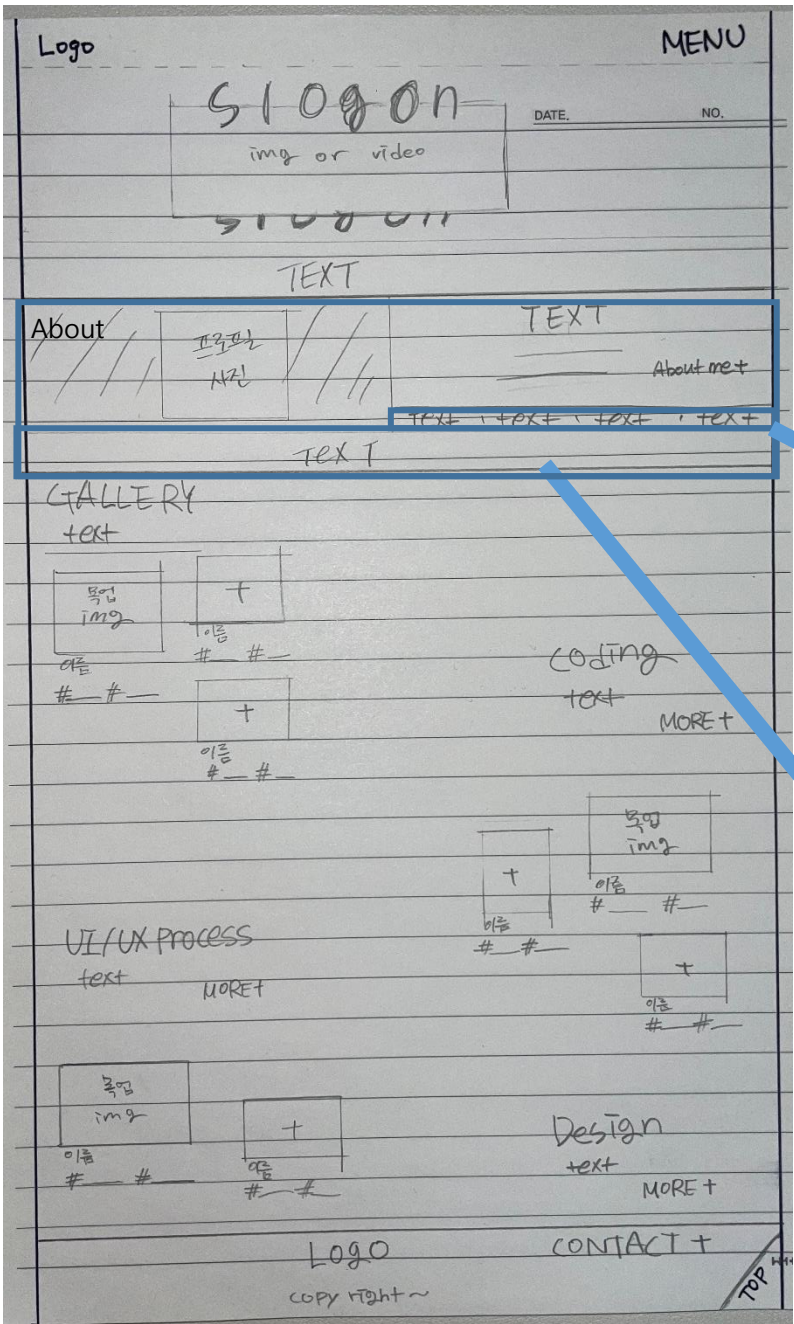 Logo MENU
Slogan
DATE. NO.
img or video
TEXT
About
프로필
사진
TEXT
About me+
text text text text
TEXT
GALLERY
text
목업
img
이름
#__ #__
+
이름
#__ #__
+
이름
#__ #__
coding
text
MORE+
목업
img
이름
#__ #__
+
이름
#__ #__
+
이름
#__ #__
UI/UX process
text
MORE+
목업
img
이름
#__ #__
+
이름
#__ #__
Design
text
MORE+
LOGO
CONTACT +
copy right~
TOP